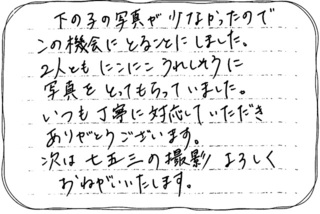 下の子の写真が少なかったので
この機会にとることにしました。
2人ともにこにこうれしそうに
写真をとってもらっていました。
いつも丁寧に対応していただき
ありがとうございます。
次は七五三の撮影よろしく
おねがいいたします。